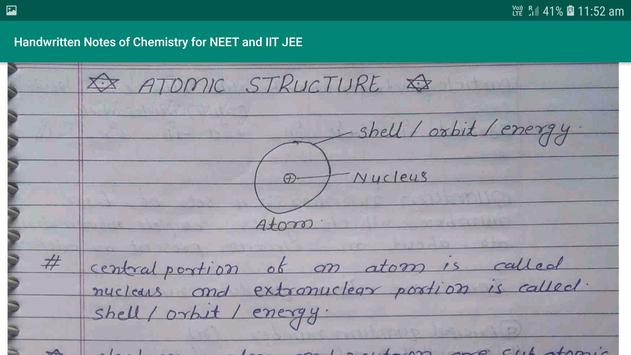 Vo) LTE 41% 11:52 am
Handwritten Notes of Chemistry for NEET and IIT JEE
ATOMIC STRUCTURE
shell / orbit / energy.
Nucleus
Atom.
# central portion of an atom is called
nucleus and extranuclear portion is called.
shell / orbit / energy.
are sub atomic